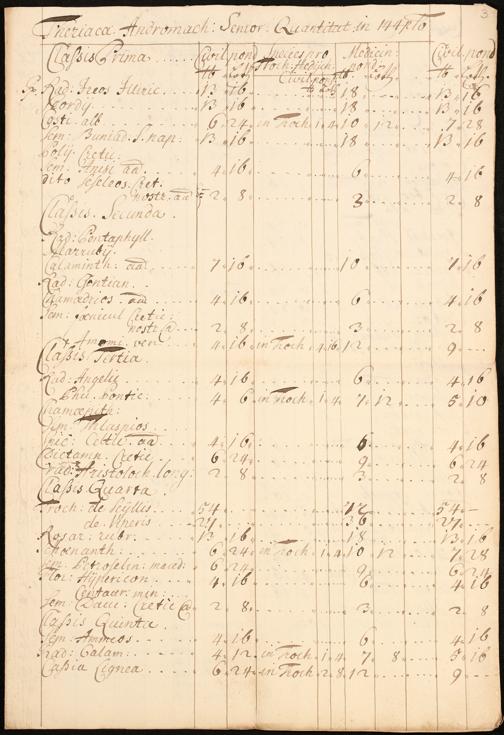 3
Theriaca Andromach: Senior. Quantitat in 144 lb
Classis Prima Civil pond Species pro Medicin: Civil pond
Troch. Medicin pond
lb Loth Civil pond lb Loth lb Loth
Rad: Ireos Illiric. 13. 16 18 13. 16
Scordij 13. 16 18 13. 16
Costi alb. 6. 24 in Troch. 1. 4 10 12 7. 28
Sem: Buniad. S. nap: 13. 16 18 13. 16
Polij Cretic:
Sem: Anisi aa 4. 16 6 4. 16
dito Seseleos Cret.
nostr. aa 2. 8 3 2. 8
Classis. Secunda.
Rad: Pentaphyll.
Marrubij.
Calaminth: aa 7. 16 10 7. 16
Rad: Gentian.
Chamædrios. aa 4. 16 6 4. 16
Sem: fœnicul Cretic:
nostr 2. 8 3 2. 8
Amomi. ver: 4. 16 in Troch. 4. 16 12 9
Classis Tertia.
Rad: Angelic 4. 16 6 4. 16
Phu. pontic: 4. 6 in Troch. 1. 4 7. 12 5. 10
Chamœpith:
Sem: Thlaspios.
Spic: Celtic aa 4. 16 6 4. 16
Dictamn. Cretic 6. 24 9 6. 24
Rad: Aristoloch. long: 2. 8 3 2. 8
Classis. Quarta.
Troch: de Scyllis. 54 72 54
de Viperis 27 36 27
Rosar: rubr: 13. 16 18 13. 16
Schœnanth: 6. 24 in Troch. 1. 4 10 12 7. 28
Sem: Petroselin: maced: 6. 24 9 6. 24
Flor: Hypericon 4. 16 6 4. 16
Centaur: min:
Sem: Dauci Cretic 2. 8 3 2. 8
Classis Quinta.
Sem: Ammeos 4. 16 6 4. 16
Rad: Calam: 4. 12 in Troch. 1. 4 7 8 5. 16
Cassia Lignea 6. 24 in Troch. 2. 8 12 9